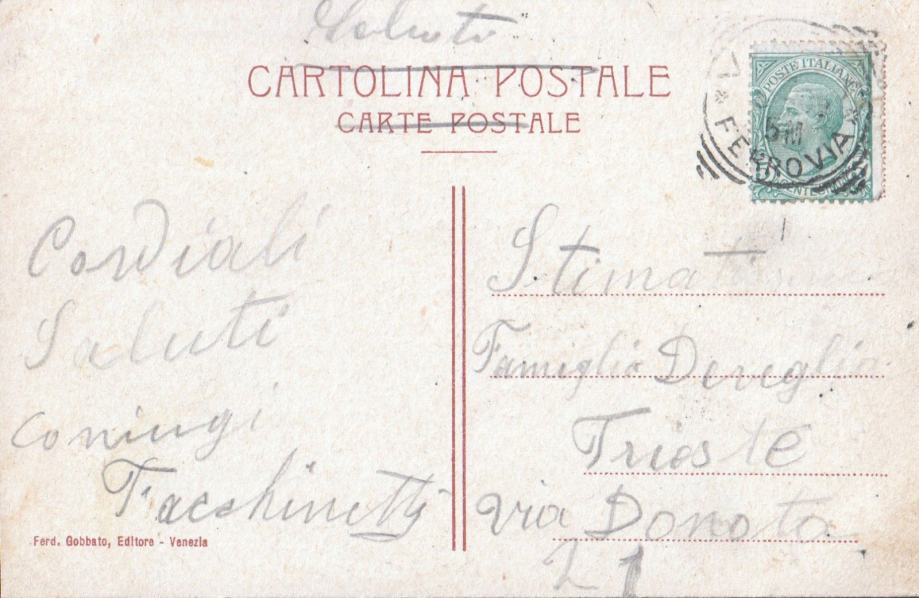 Saluti
CARTOLINA POSTALE
CARTE POSTALE
POSTE ITALIANE
FERROVIA
Cordiali
Saluti
coniugi
Facchinetti
Ferd. Gobbato, Editore - Venezia
Famiglia
Trieste
via Donota
21